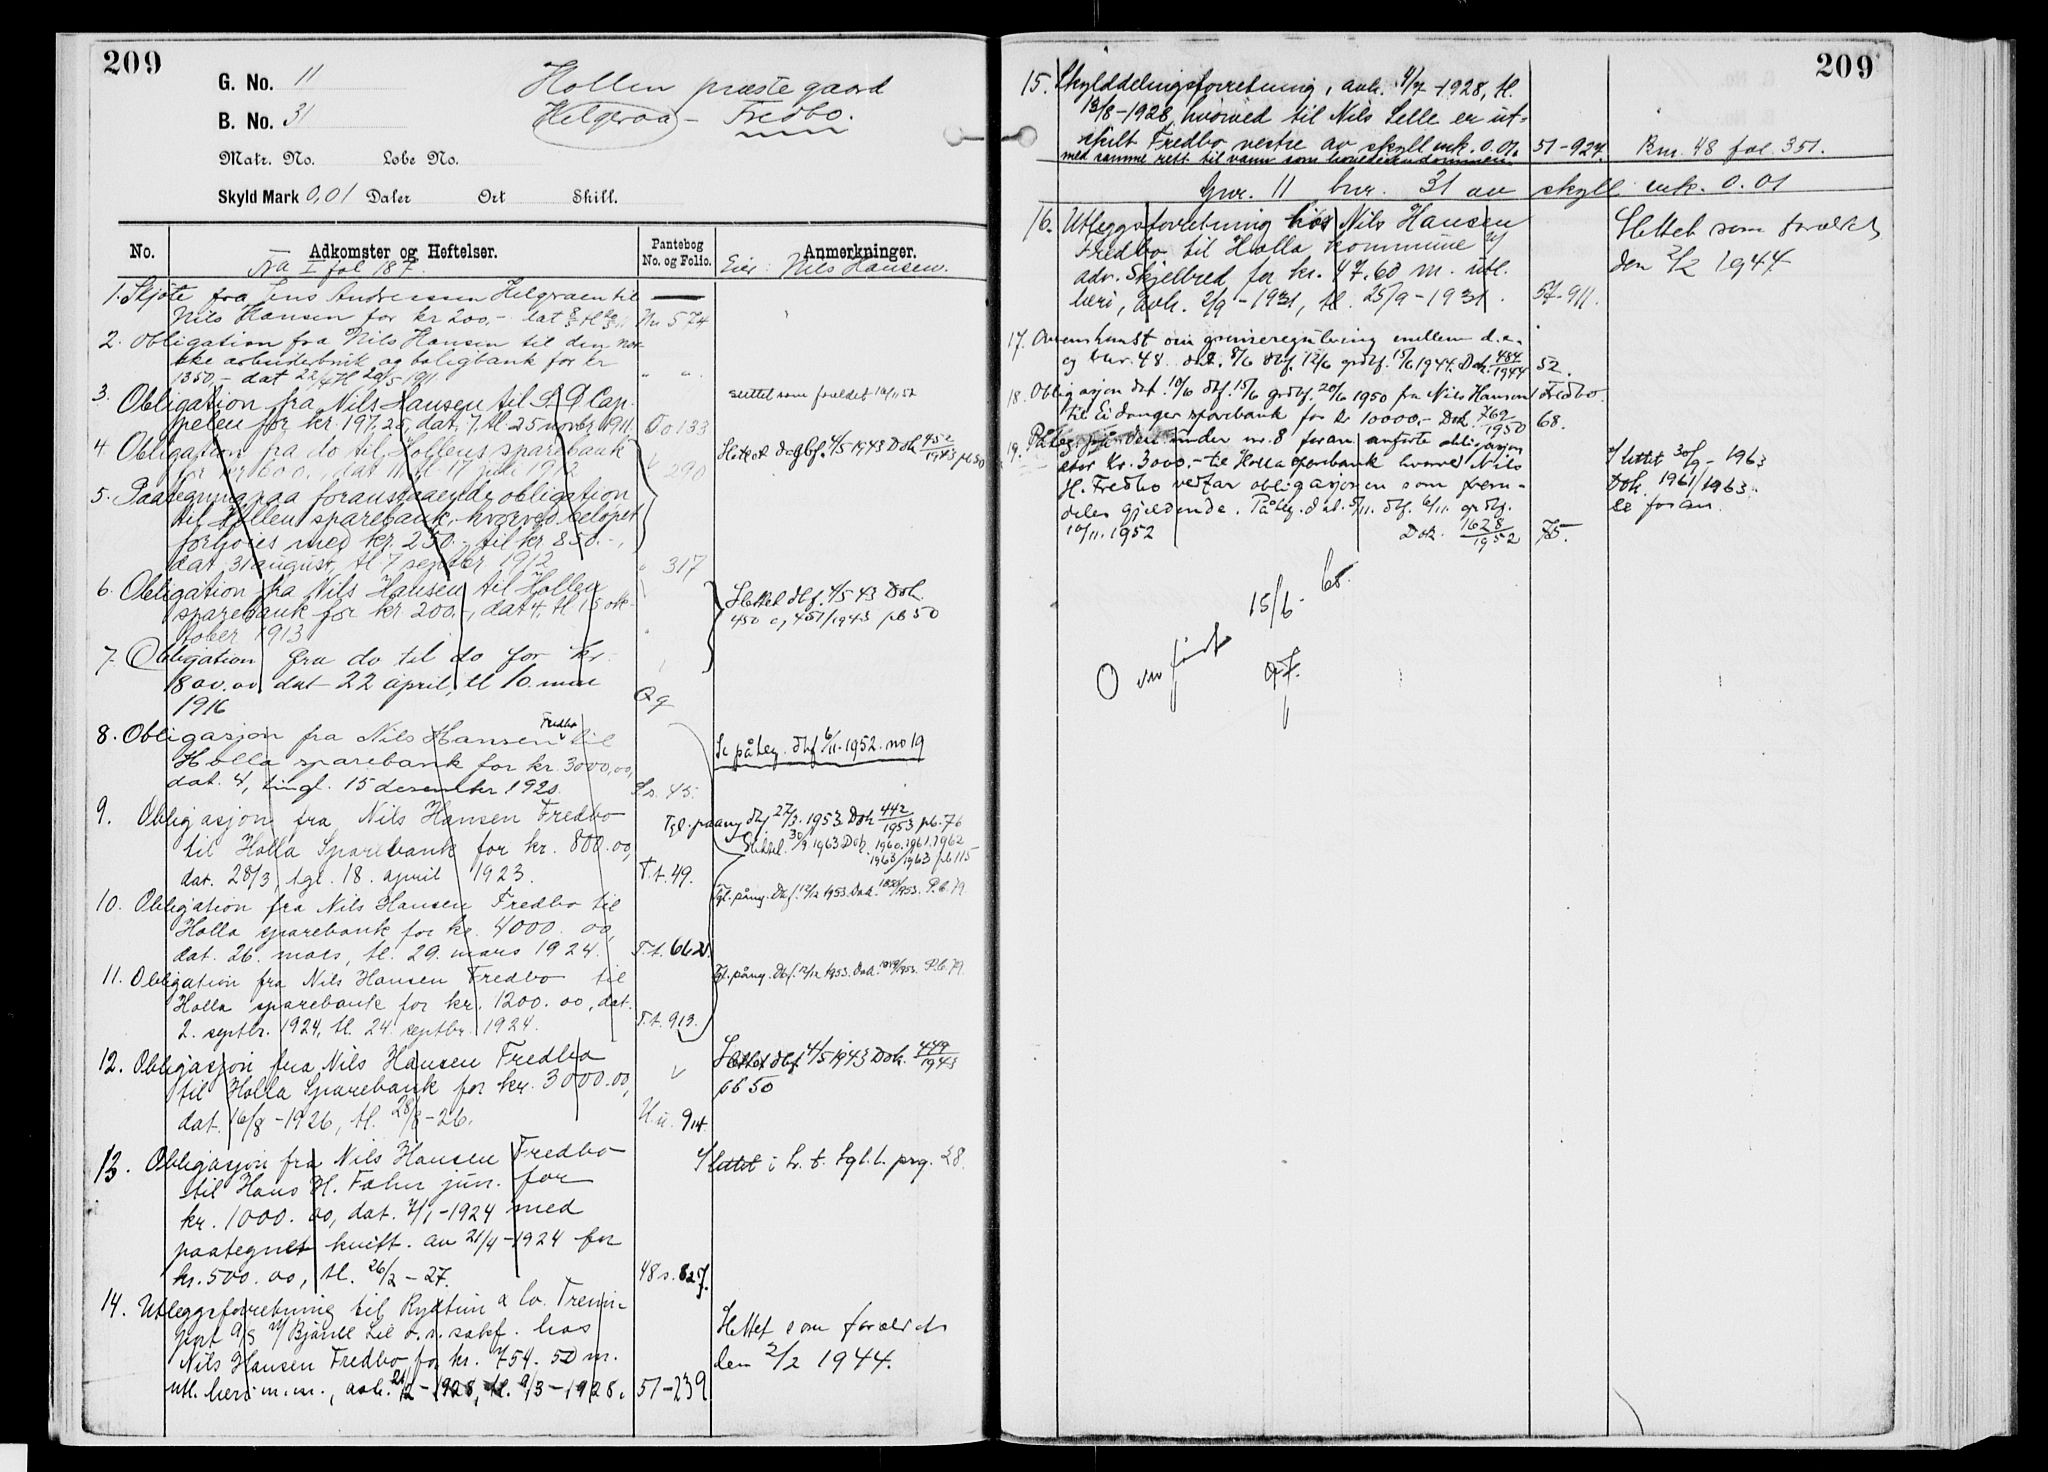 209
G. No. 11
Hollen prestegaard
B. No. 31
Helgeraa - Fredbo.
Matr. No. Løbe No.
Skyld Mark 0,01 Daler Ort Skill.
No. Adkomster og Heftelser. Pantebog No. og Folio. Anmerkninger.
Fra I fol 187. Eier: Nils Hansen.
1. Skjøte fra Jens Andreassen Helgraen til
Nils Hansen for kr 200,- dat Nn 574
2. Obligation fra Nils Hansen til den nor-
ske arbeiderbruk og boligbank for kr
1350,- dat 22/4 tl 20/5 1911 " "
3. Obligation fra Nils Hansen til S. D. Cap-
pelen for kr. 197.25, dat. 7. tl 25 novbr 1911. Oo 133
slettet som foreldet 14/11 52
4. Obligation fra do til Hollens sparebank
for kr 600.-, dat 11 tl 17 juli 1912 " 290
Slettet dagbf. 4/5 1943 Dok 452/1943 pb 50
5. Paategning paa foranstaaende obligation
til Hollen sparebank, hvorved beløpet
forhøies med kr. 250.- til kr. 850.-,
dat. 31 august, tl 7 septbr 1912 " 317
6. Obligation fra Nils Hansen til Hollen
sparebank for kr 200.-, dat 4. tl 15 ok-
tober 1913 "
Slettet dbf. 4/5 43 Dok.
450 og 451/1943 pb 50
7. Obligation fra do til do for kr.
1800.00 dat 22 april, tl 10. mai
1916 Qq
8. Obligasjon fra Nils Hansen Fredbo til
Holla sparebank for kr. 3000,00,
dat. 4, tingl. 15 desember 1920. Ss. 45.
Se påteg. dbf 6/11-1952. no 19
9. Obligasjon fra Nils Hansen Fredbo
til Holla Sparebank for kr. 800.00,
dat. 28/3, tgl. 18. april 1923. T.t. 49.
Tgl. paang dbf 27/3. 1953 Dok 442/1953 pb. 76
Slettet 30/9 1963 Dok. 1960. 1961. 1962
1963/1963 pb 115
10. Obligation fra Nils Hansen Fredbo til
Holla sparebank for kr. 4000.00,
dat. 26. mars, tl. 29. mars 1924. T.t. 662
Tgl. pång. Dbf. 12/12 1953. Dok. P.b. 79.
11. Obligation fra Nils Hansen Fredbo til
Holla sparebank for kr. 1200.00, dat.
2. septbr. 1924, tl. 24. septbr. 1924. T.t. 913.
Tgl. pång. Dbf. 12/12 1953. Dok. P.b. 79.
12. Obligasjon fra Nils Hansen Fredbo
til Holla Sparebank for kr. 3000.00,
dat. 16/8-1926, tl. 28/8-26. U.u. 914.
Slettet dbf 4/5 1943 Dok. 449/1943
pb 50
13. Obligasjon fra Nils Hansen Fredbo
til Hans H. Fahn jun. for
kr. 1000.00, dat. 7/1-1924 med
paategnet kvitt. av 21/4-1924 for
kr. 500.00, tl. 26/2-27. 48 s. 827.
Slettet i h. t. tgl. l. prg. 28.
14. Utlegsforretning til
Nils Hansen Fredbo for kr. 754.50 m.
utl. heri m.m., avh. 21/2-1928, tl. 9/3-1928. 51-239
Slettet som foreldet
den 2/2 1944.
209
15. Skylddelingsforretning, avh. 4/7-1928, tl.
13/8-1928, hvorved til Nils Lelle er ut-
skilt Fredbo vestre av skyld mk. 0.01. 51-927. Bnr. 48 fol. 351.
med samme rett til vann som hovedeiendommen.
Gnr. 11 bnr. 31 av skyll mk. 0.01
16. Utleggsforretning hos Nils Hansen
Fredbo til Holla kommune v/
adv. Skjelbred for kr. 47.60 m. utl.
heri, avh. 2/9-1931, tl. 25/9-1931. 57-911.
Slettet som foreldet
den 2/2 1944
17. Overenskomst om grensereguleering mellem d.e.
og bnr. 48. dat. 8/6 dbf. 12/6 grdbf. 15/6 1944. Dok. 484/1944 52.
18. Obligasjon dat. 10/6 dbf. 15/6 grdbf. 20/6 1950 fra Nils Hansen Fredbo
til Eidanger sparebank for kr 10000,- Dok. 769/1950 68.
19. Påteg. på den under nr. 8 foran anførte obligasjon
stor kr. 3000.- til Holla sparebank hvorved Nils
H. Fredbo vedtar obligasjonen som frem-
deles gjeldende. Påteg. dat. 5/11. dbf. 6/11. grdbf.
10/11. 1952 Dok. 1628/1952 75.
Slettet 30/9-1963
Dok. 1961/1963.
se foran.
15/6- 65.
Overført